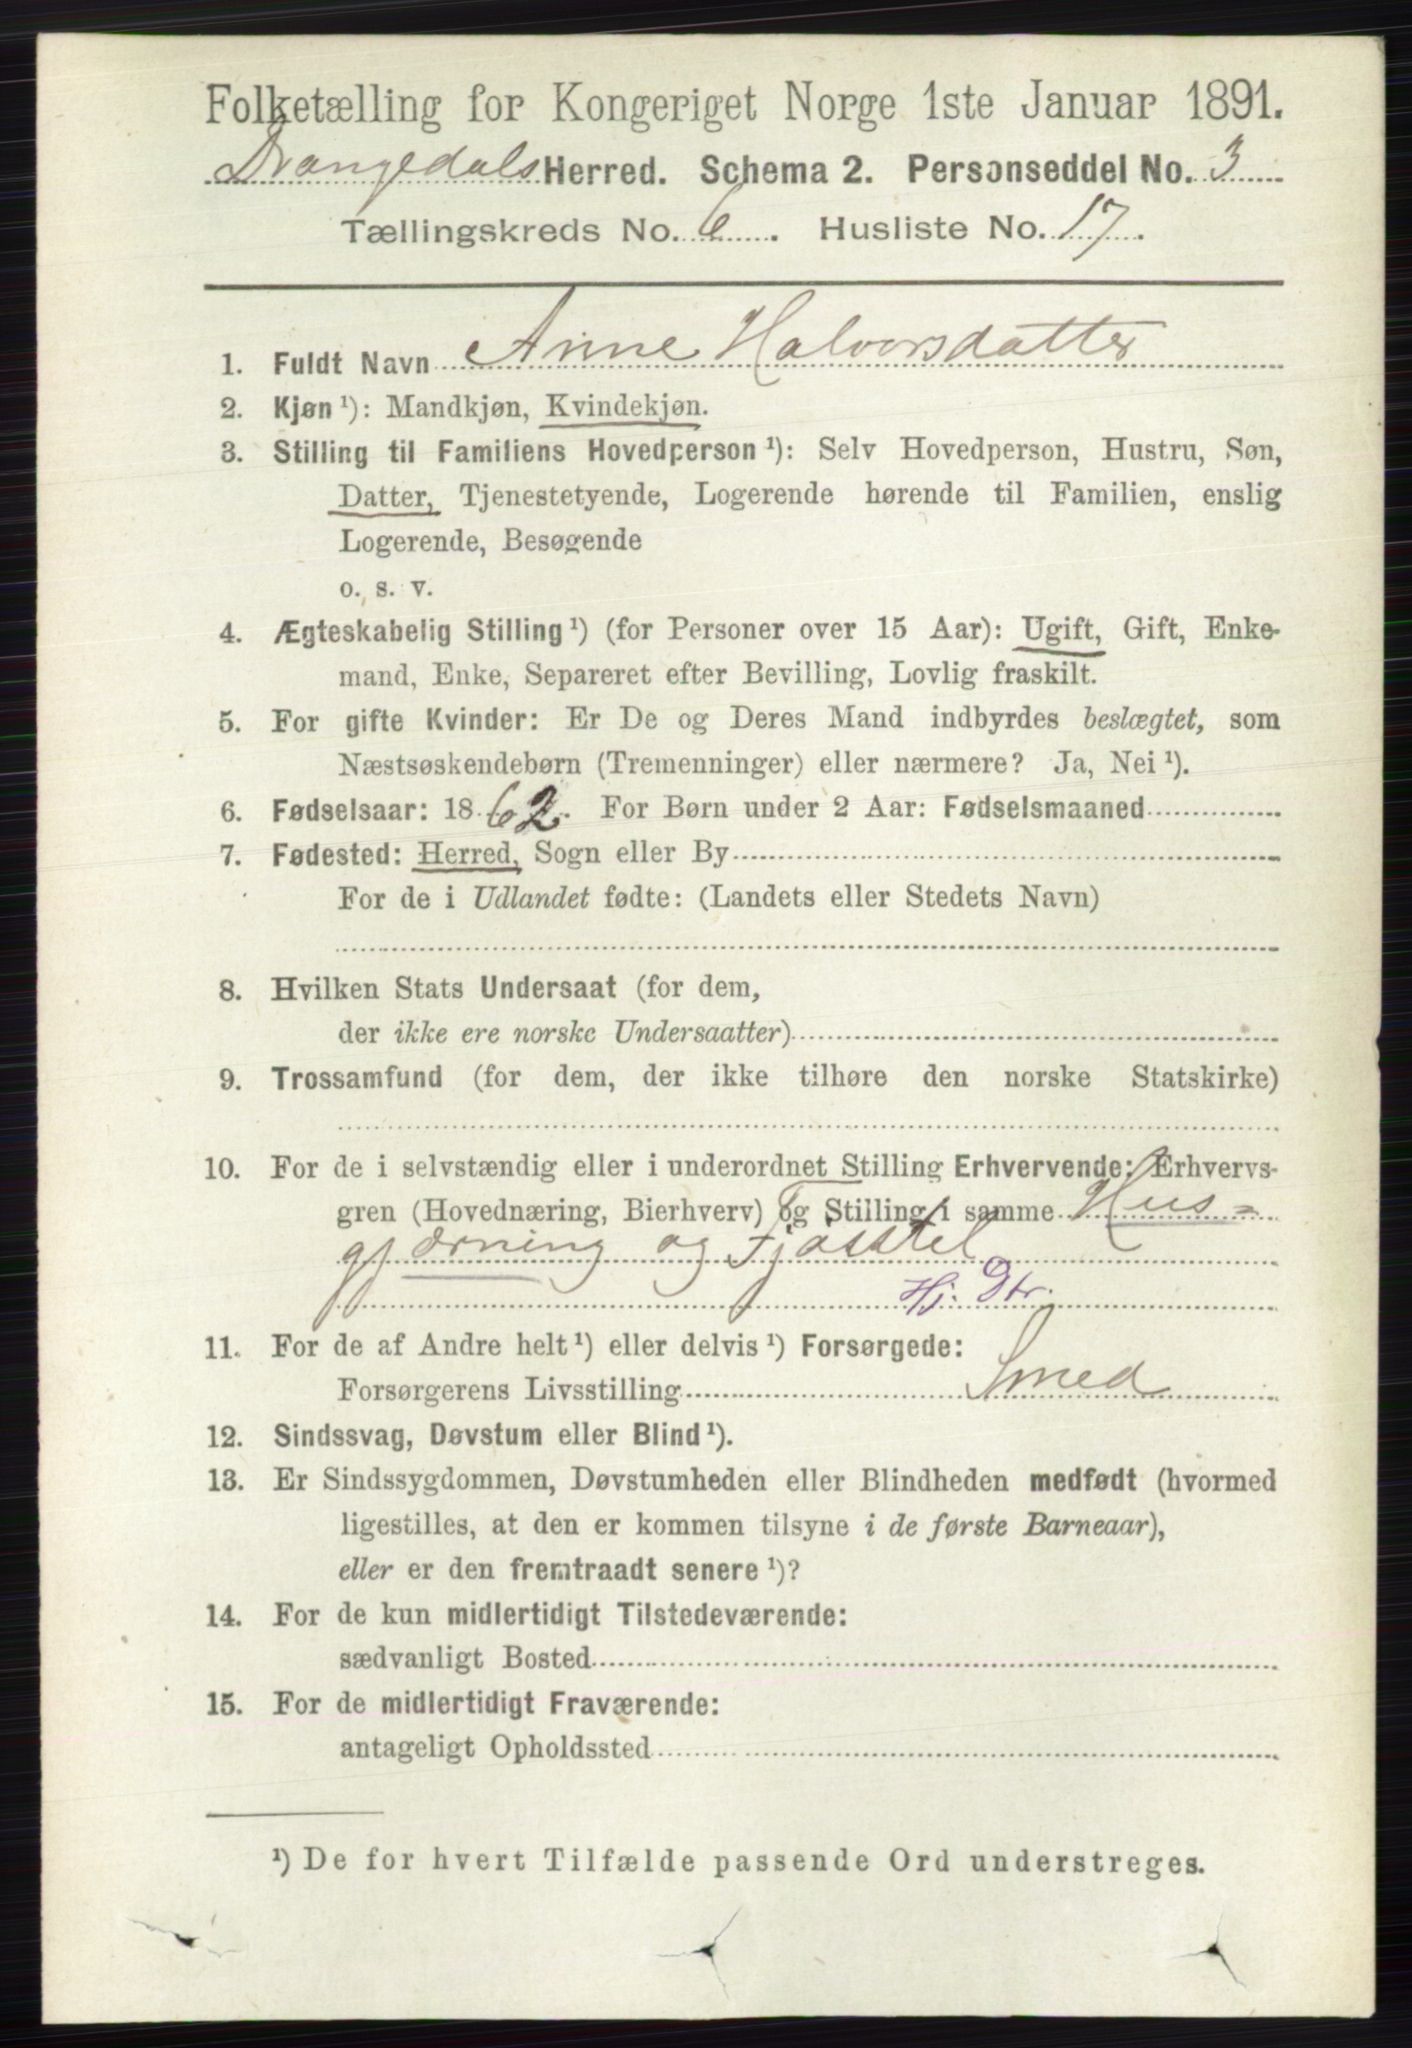 Folketælling for Kongeriget Norge 1ste Januar 1891.
Drangedals Herred. Schema 2. Personseddel No. 3
Tællingskreds No. 6. Husliste No. 17.
1. Fuldt Navn Anne Halvorsdatter
2. Kjøn¹): Mandkjøn, Kvindekjøn.
3. Stilling til Familiens Hovedperson¹): Selv Hovedperson, Hustru, Søn,
Datter, Tjenestetyende, Logerende hørende til Familien, enslig
Logerende, Besøgende
o. s. v.
4. Ægteskabelig Stilling¹) (for Personer over 15 Aar): Ugift, Gift, Enke-
mand, Enke, Separeret efter Bevilling, Lovlig fraskilt.
5. For gifte Kvinder: Er De og Deres Mand indbyrdes beslægtet, som
Næstsøskendebørn (Tremenninger) eller nærmere? Ja, Nei¹).
6. Fødselsaar: 1862. For Børn under 2 Aar: Fødselsmaaned
7. Fødested: Herred, Sogn eller By
For de i Udlandet fødte: (Landets eller Stedets Navn)
8. Hvilken Stats Undersaat (for dem,
der ikke ere norske Undersaatter)
9. Trossamfund (for dem, der ikke tilhøre den norske Statskirke)
10. For de i selvstændig eller i underordnet Stilling Erhvervende: Erhvervs-
gren (Hovednæring, Bierhverv) og Stilling i samme Hus=
gjærning og Fjøsstel
Hj. Dtr.
11. For de af Andre helt¹) eller delvis¹) Forsørgede:
Forsørgerens Livsstilling Smed
12. Sindssvag, Døvstum eller Blind¹).
13. Er Sindssygdommen, Døvstumheden eller Blindheden medfødt (hvormed
ligestilles, at den er kommen tilsyne i de første Barneaar),
eller er den fremtraadt senere¹)?
14. For de kun midlertidigt Tilstedeværende:
sædvanligt Bosted
15. For de midlertidigt Fraværende:
antageligt Opholdssted
¹) De for hvert Tilfælde passende Ord understreges.